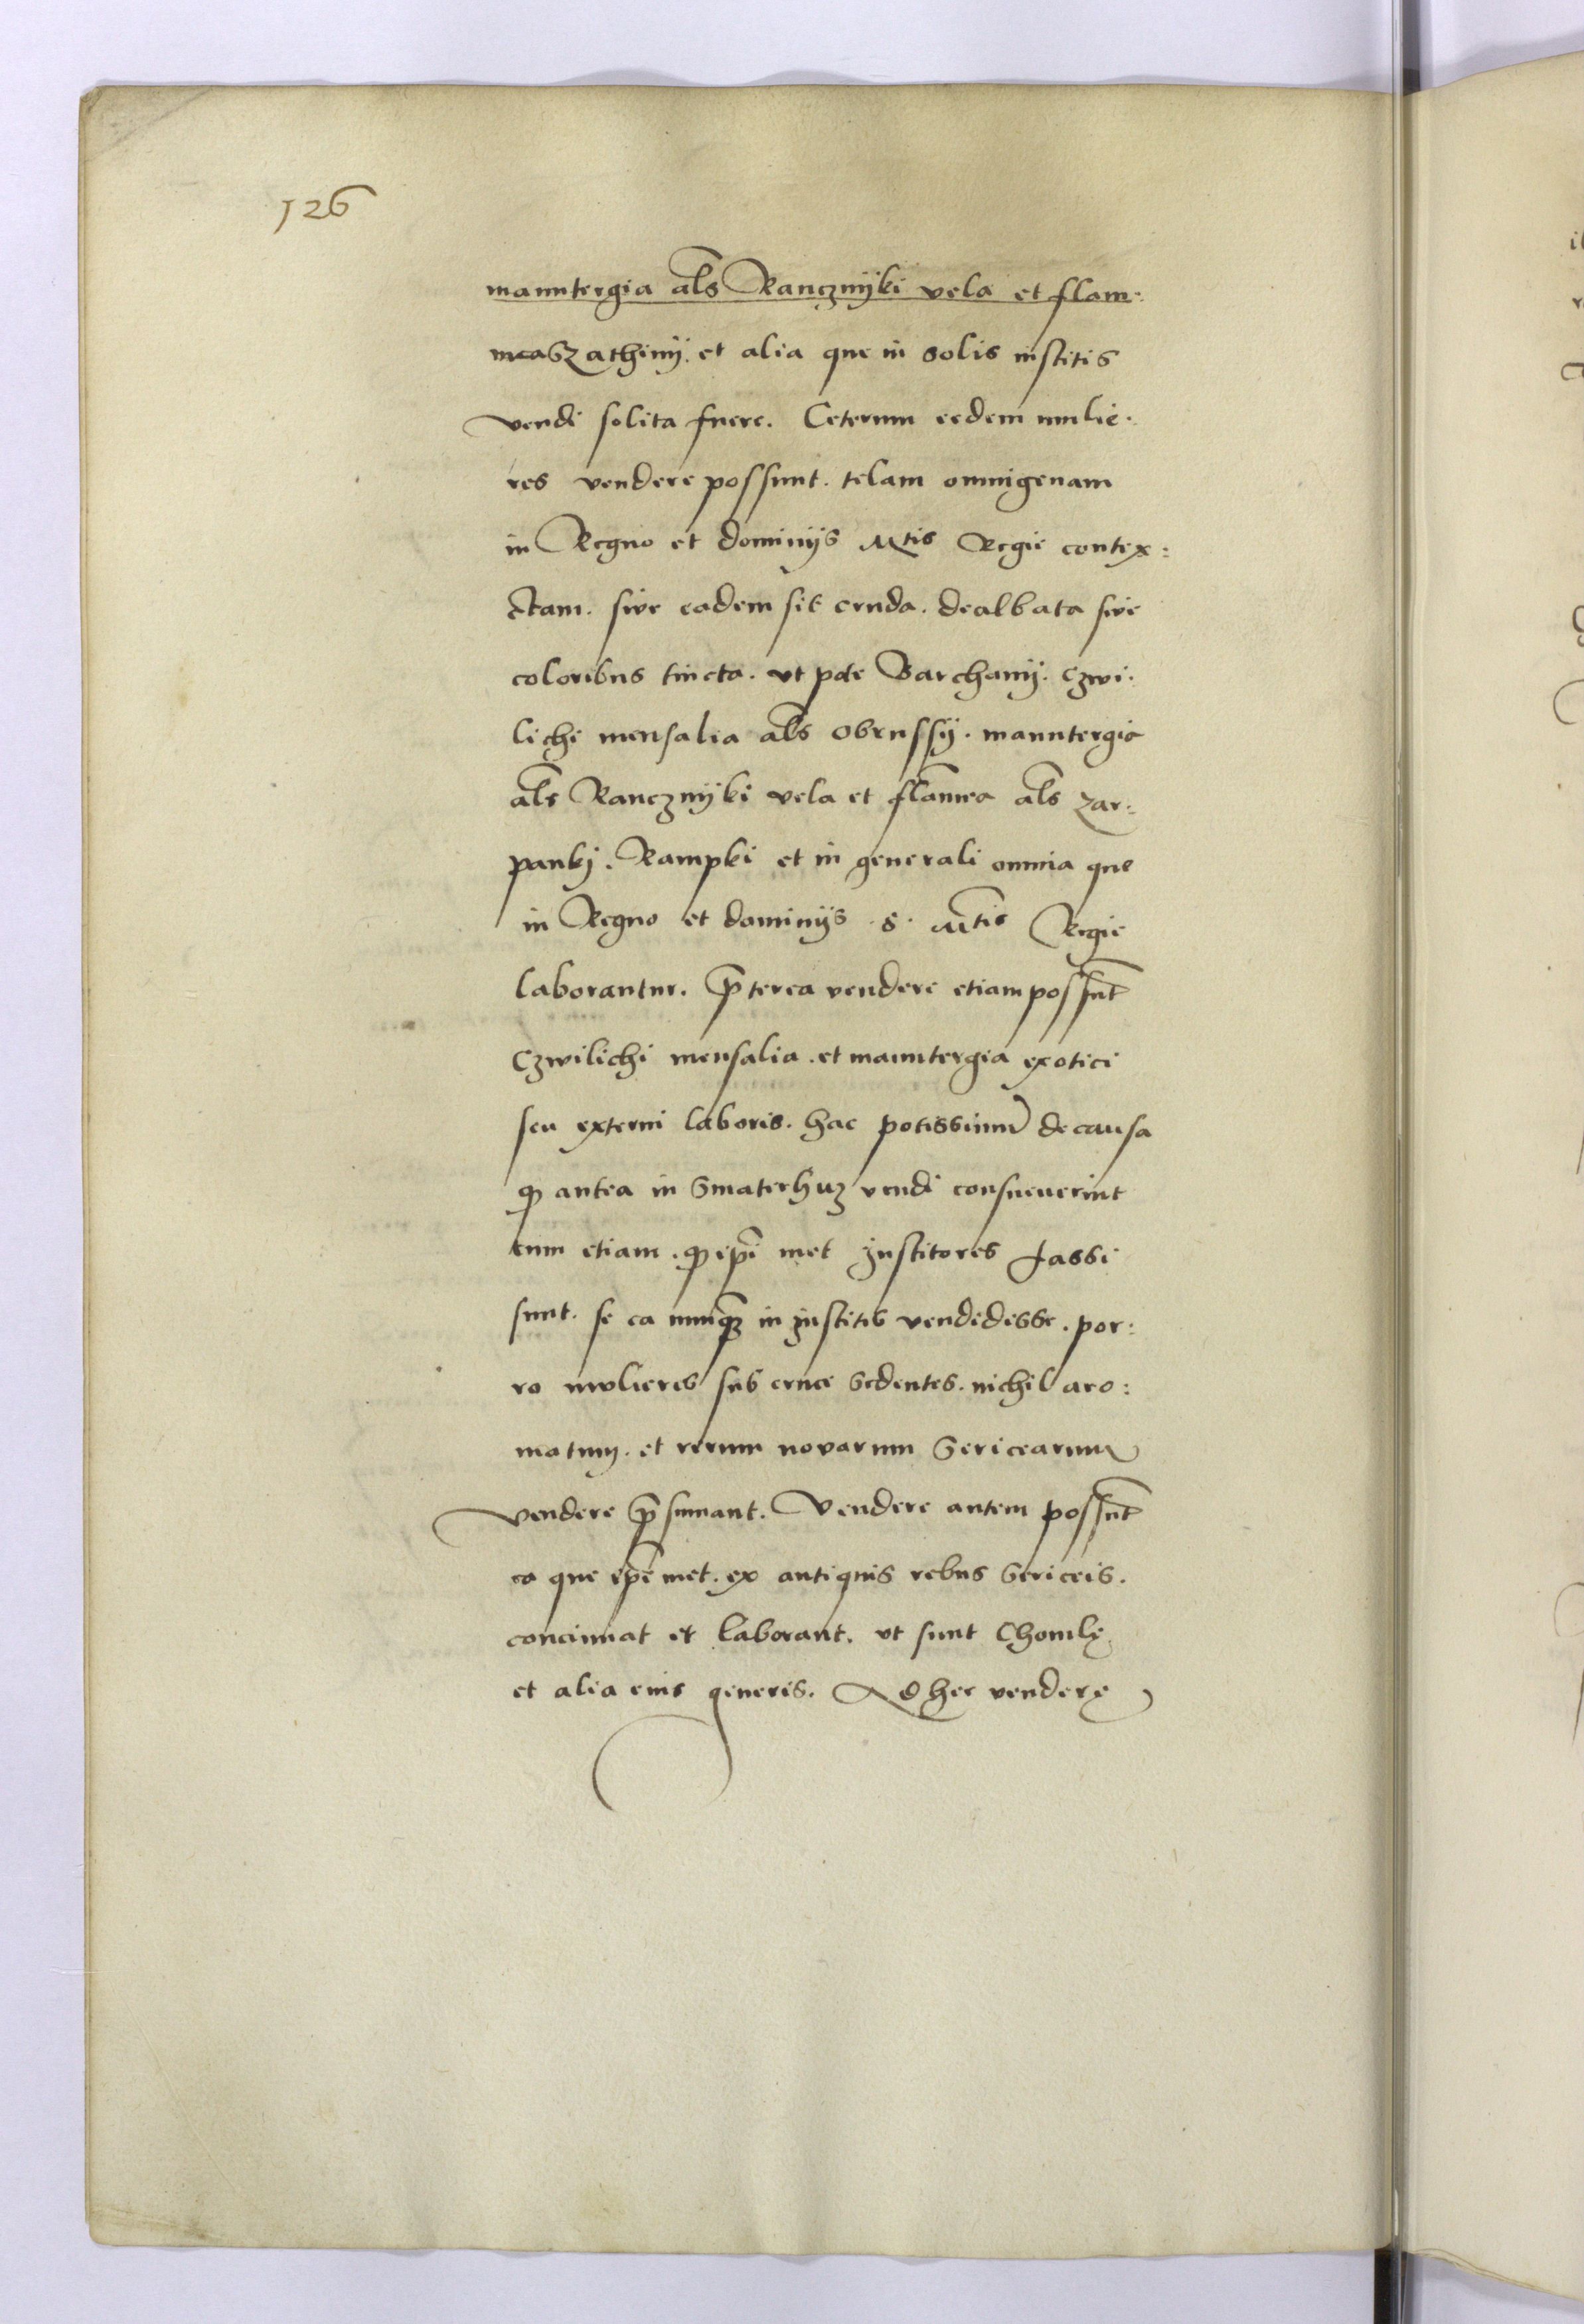 126
manutergia als Ranczniki vela et flam:
mea Szathiny. et alia que in solis institis
vendi solita fuere. Ceterum eedem mulie:
res vendere possunt. telam omnigenam
in Regno et dominiis Mtis Regie contex:
ctam. sive eadem sit cruda. dealbata sive
coloribus tincta. ut pote Barchany. Czwi:
lichi mensalia als obrussy. manutergia
als Ranczniki vela et flamea als zar:
panki. Rampki et in generali omnia que
in Regno et dominiis S. Mtis Regie
laborantur. preterea vendere etiam possunt
Czwilichi mensalia. et manutergia exotici
seu externi laboris. hac potissimum de causa
quod antea in Smaterhuz vendi consueverint
tum etiam. quod ipsi met Institores fassi
sunt. se ea nunquam in Institis vendidisse. por:
ro mulieres sub cruce sedentes. nichil aro:
matum. et rerum novarum Sericearum
vendere presumant. Vendere autem possunt
ea que ipse met. ex antiquis rebus Sericeis.
concinnat et laborant. ut sunt Chomle
et alia eius generis. Ad hec vendere